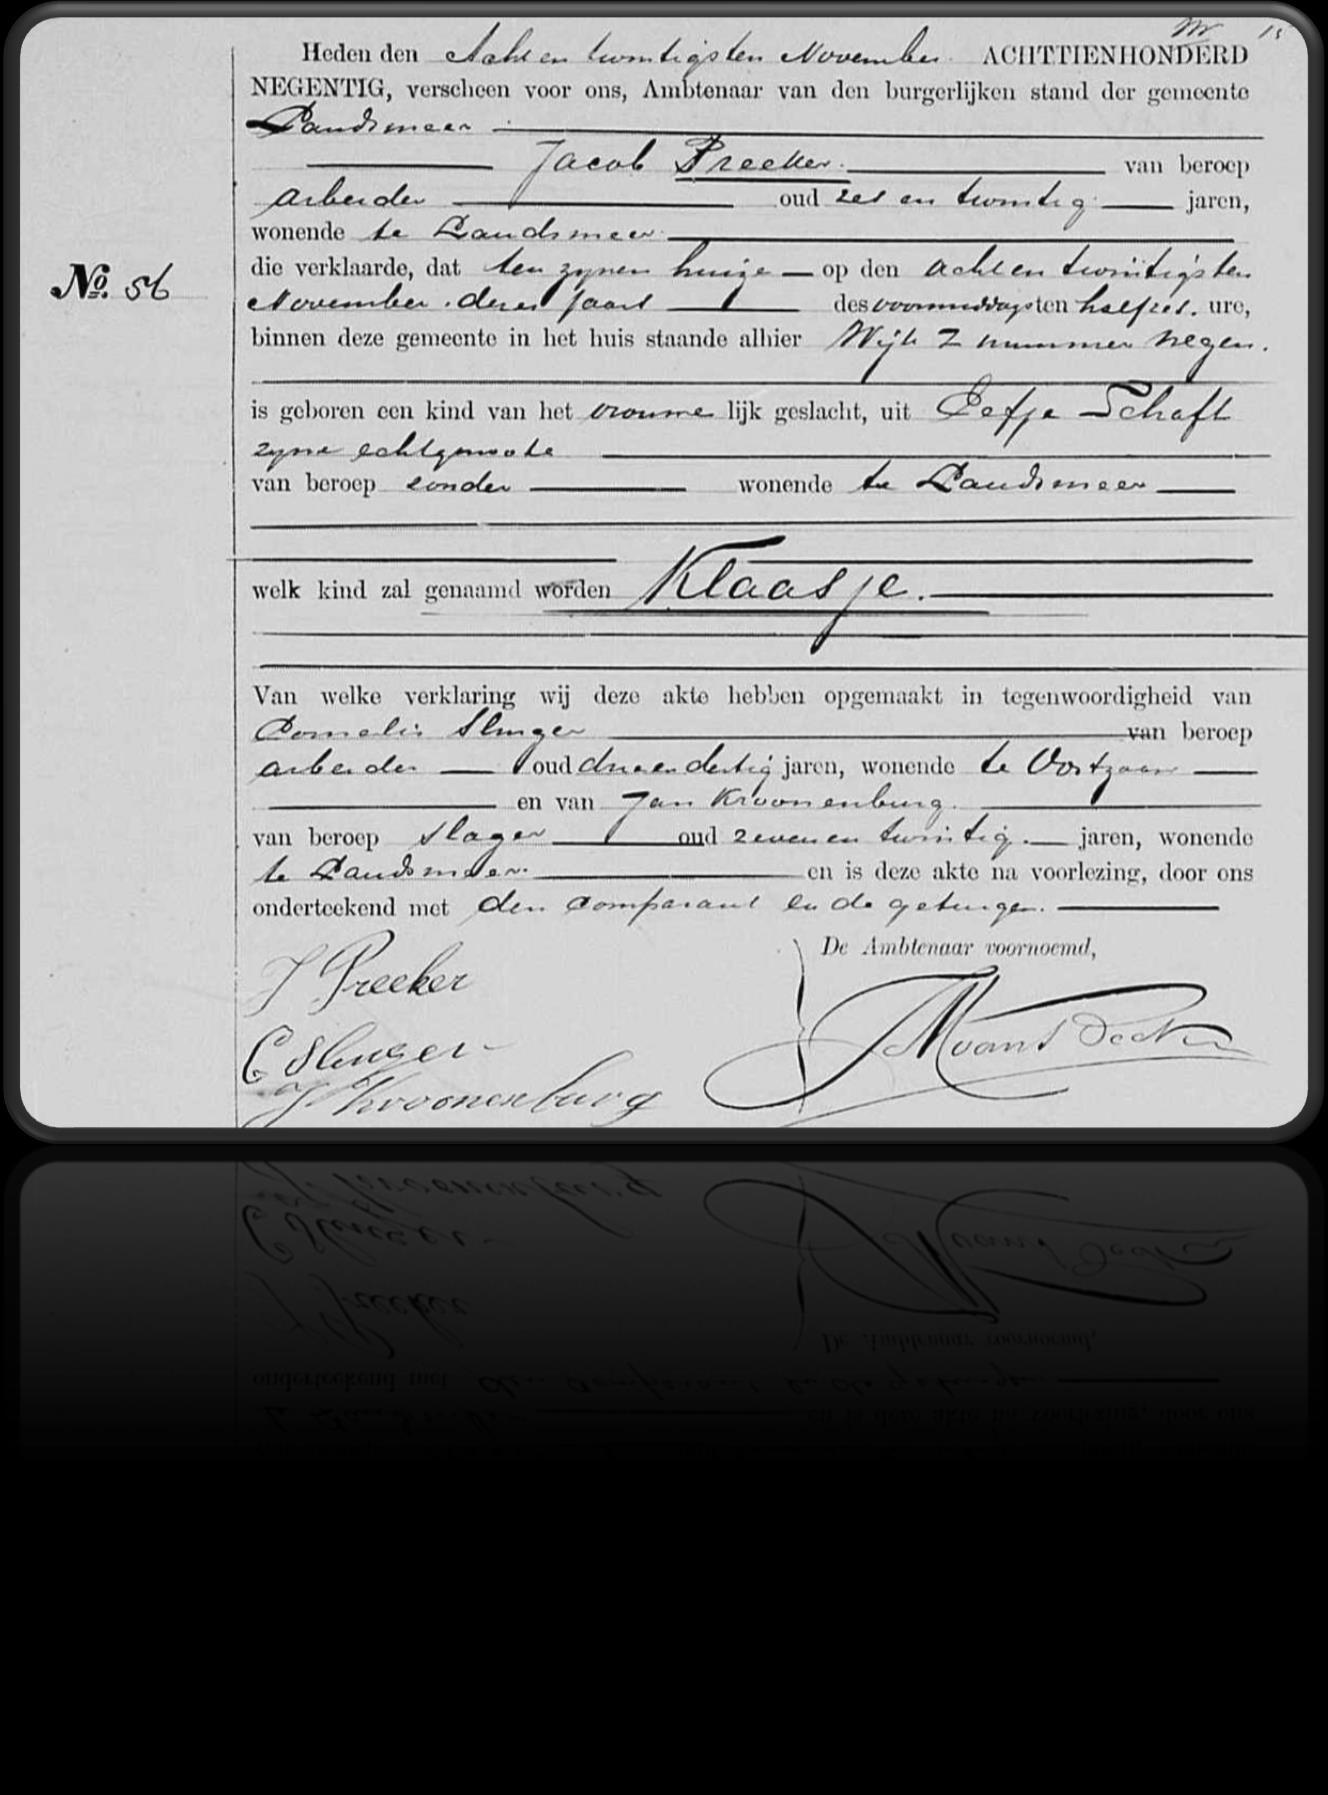 Heden den Acht en twintigsten November ACHTTIENHONDERD
NEGENTIG, verscheen voor ons, Ambtenaar van den burgerlijken stand der gemeente
Landsmeer
Jacob Preeker van beroep
arbeider oud zes en twintig jaren,
wonende te Landsmeer
die verklaarde, dat ten zynen huize op den acht en twintigsten
No. 56
November dezes jaars des voormiddags ten half zes. ure,
binnen deze gemeente in het huis staande alhier Wijk 2 nummer negen.
is geboren een kind van het vrouwe lijk geslacht, uit Eefje Schaft
zyne echtgenoote
van beroep zonder wonende te Landsmeer
welk kind zal genaamd worden Klaasje.
Van welke verklaring wij deze akte hebben opgemaakt in tegenwoordigheid van
Cornelis Slinger van beroep
arbeider oud drie en dertig jaren, wonende te Oostzaan
en van Jan Kroonenburg.
van beroep slager oud zeven en twintig. jaren, wonende
te Landsmeer. en is deze akte na voorlezing, door ons
onderteekend met den comparant en de getuigen.
De Ambtenaar voornoemd,
J Preeker
C Slinger
J Kroonenburg